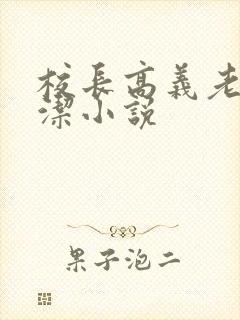 校長高義老
潔小說
果子泡二